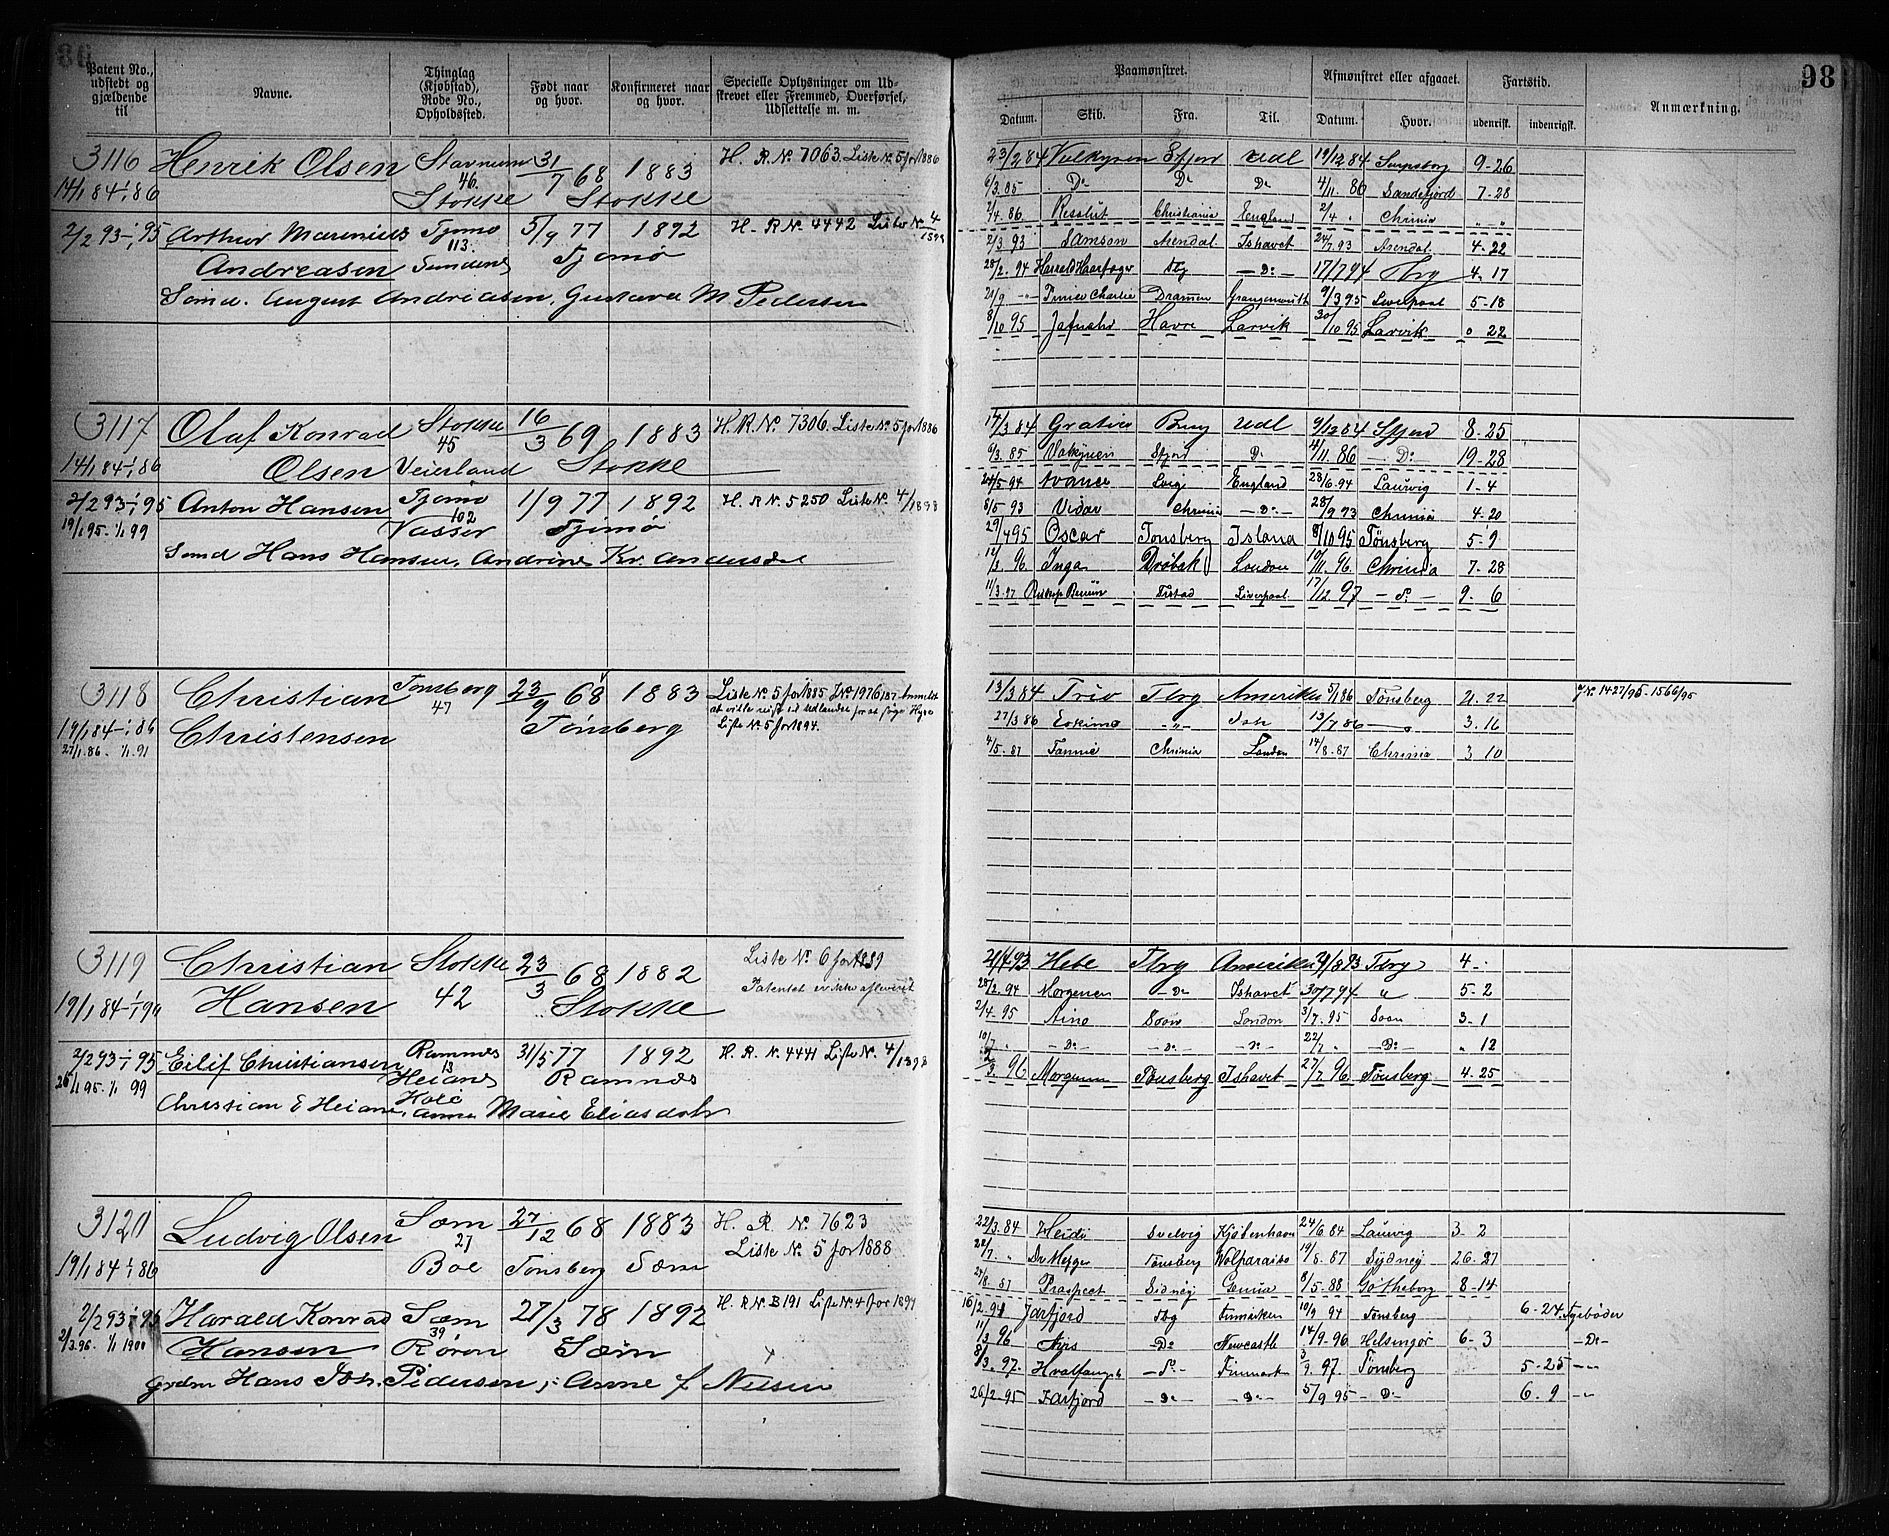 98
Patent No., udstedt og gjældende til
Navne.
Thinglag (Kjøbstad), Rode No., Opholdssted.
Født naar og hvor.
Konfirmeret naar og hvor.
Specielle Oplysninger om Udskrevet eller Fremmed, Overførsel, Udslettelse m. m.
Paamønstret.
Datum. Skib. Fra. Til.
Afmønstret eller afgaaet.
Datum. Hvor.
Fartstid.
udenrigsk. indenrigsk.
Anmærkning.
3116 Henrik Olsen 46. 31/7 68 1883 H. R. No 7063. Liste No 5 for 1886
14/1 84-1/1 86 Stokke Stokke
23/2 84 Valkyren Sfjord Udl 19/12 84 Sarpsborg 9-26
6/3. 85 Do Do Do 4/11. 86 Sandefjord 7-28
2/4. 86. Resolut Christiania England 2/4 " Chrinia " "
2/2 93-1/1 95 Arthur Marenius Tjømø 113. 5/9 77 1892 H. R No 4442 Liste No 4
Andreasen Tjømø
Sømd. August Andreasen, Gustava M Pedersen
2/3 93 Samson Arendal Ishavet 24/7 93 Arendal 4-22
28/2. 94 Harald Haarfager Tbg - Do - 17/7 94 Tbg 4-17
Drammen Grangemouth 9/3 95 Liverpool 5-18
8/10 95 Havre Larvik 30/10 95 Larvik 0 22
3117 Olaf Konrad Stokke 45 16/3 69 1883 H. R. No 7306. Liste No 5 for 1886
14/1 84-1/1 86 Olsen Veierland Stokke
17/3 84 Udl 9/12 84 Sfjord 8-25
6/3. 85 Valkyrien Sfjord Do 4/11. 86 Do 19-28
24/5 94 Avance England 28/6 94 Laurvig 1-4
2/2 93-1/1 95 Anton Hansen Tjømø 102 1/9 77 1892 H. R No 5250 Liste No 4/1898
19/1 95-1/1 99 Vasser Tjømø
Sømd Hans Hansen, Andrine Kr. Andersdt
8/5 93 Vidar Chrinia - Do - 28/9 93 Chrinia 4-20
29/4 95 Oscar Tønsberg Island 8/10 95 Tønsberg 5-9
12/3. 96 Inga Drøbak London 10/11. 96. Chrinia 7-28
11/3. 97 Liverpool 17/12. 97 - Do - 9-6
3118 Christian Tønsberg 47 23/9 68 1883 Liste No 5 for 1885 JNo 1976/87 Anmeldt
19/1 84-1/1 86 Christensen Tønsberg at ville reise til Udlandet for at søge Hyre
27/1. 86. 1/1. 91 Liste No. 5 for 1894.
13/3 84 Trio Tbrg Amerika 5/1 86 Tønsberg 21-22
27/3 86 Eskimo " 13/7 86 3. 16
4/5. 87 Fannie Chrinia London 14/8. 87 Chrinia 3 10
J No 1427/95-1566/95
3119 Christian Stokke 23/3 68 1882 Liste No 6 for 1889
19/1 84-1/1 90 Hansen 42 Stokke Patentet er ikke afleveret
Hebe Tbrg Amerika Tbrg 4-
28/2. 94 Morgenen - Do - Ishavet 30/7 94 " 5-2
2/4. 95 Aino Soon London 3/7. 95 Soon 3-1
10/7 " - Do - - Do - - Do - 22/7 " - Do - " 12
2/2 93-1/1 95 Eilif Christiansen Ramnes 13 31/5 77 1892 H. R. No. 4441 Liste No. 4/1898
26/1 95. 1/1 99 Ramnes
Christian E Heiane, Anna Marie Eliasdatr
2/3. 96 Morgenen Tønsberg Ishavet 27/7 96 Tønsberg 4-25
3120 Ludvig Olsen Sæm 27 27/12 68 1883 H. R. No. 7623
19/1 84-1/1 86 Boe Tønsberg Sæm Liste No. 5 for 1888
22/3. 84 Heidi Svelvig Kjøbenhavn 24/6. 84 Laurvig 3. 2
22/7. " Tønsberg Valparaiso 19/8. 87 Sydney 26-27
27/8. 87 Prospect Sidney 8/5. 88 Gøtheborg 8-14
2/2 93-1/1 95 Harald Konrad Sæm 39 27/3 78 1892 H. R No. B 191 Liste No. 4 for 1897
2/3. 96. 1/1 1900 Hansen Røren Sæm
Grdm Hans Joh. Pedersen, Anne f Nilsen
16/2. 94 Jarfjord Tbg Finmarken 10/9 94 Tønsberg 6-24
11/3 96 - Do - Newcastle 14/9. 96 Helsingør 6-3 - Do -
8/3. 97. Hvalfangst - Do - Finmark 3/9. 97 Tønsberg 5-25
26/2. 95 Jarfjord - Do - - Do - 5/9 95 - Do - 6. 9